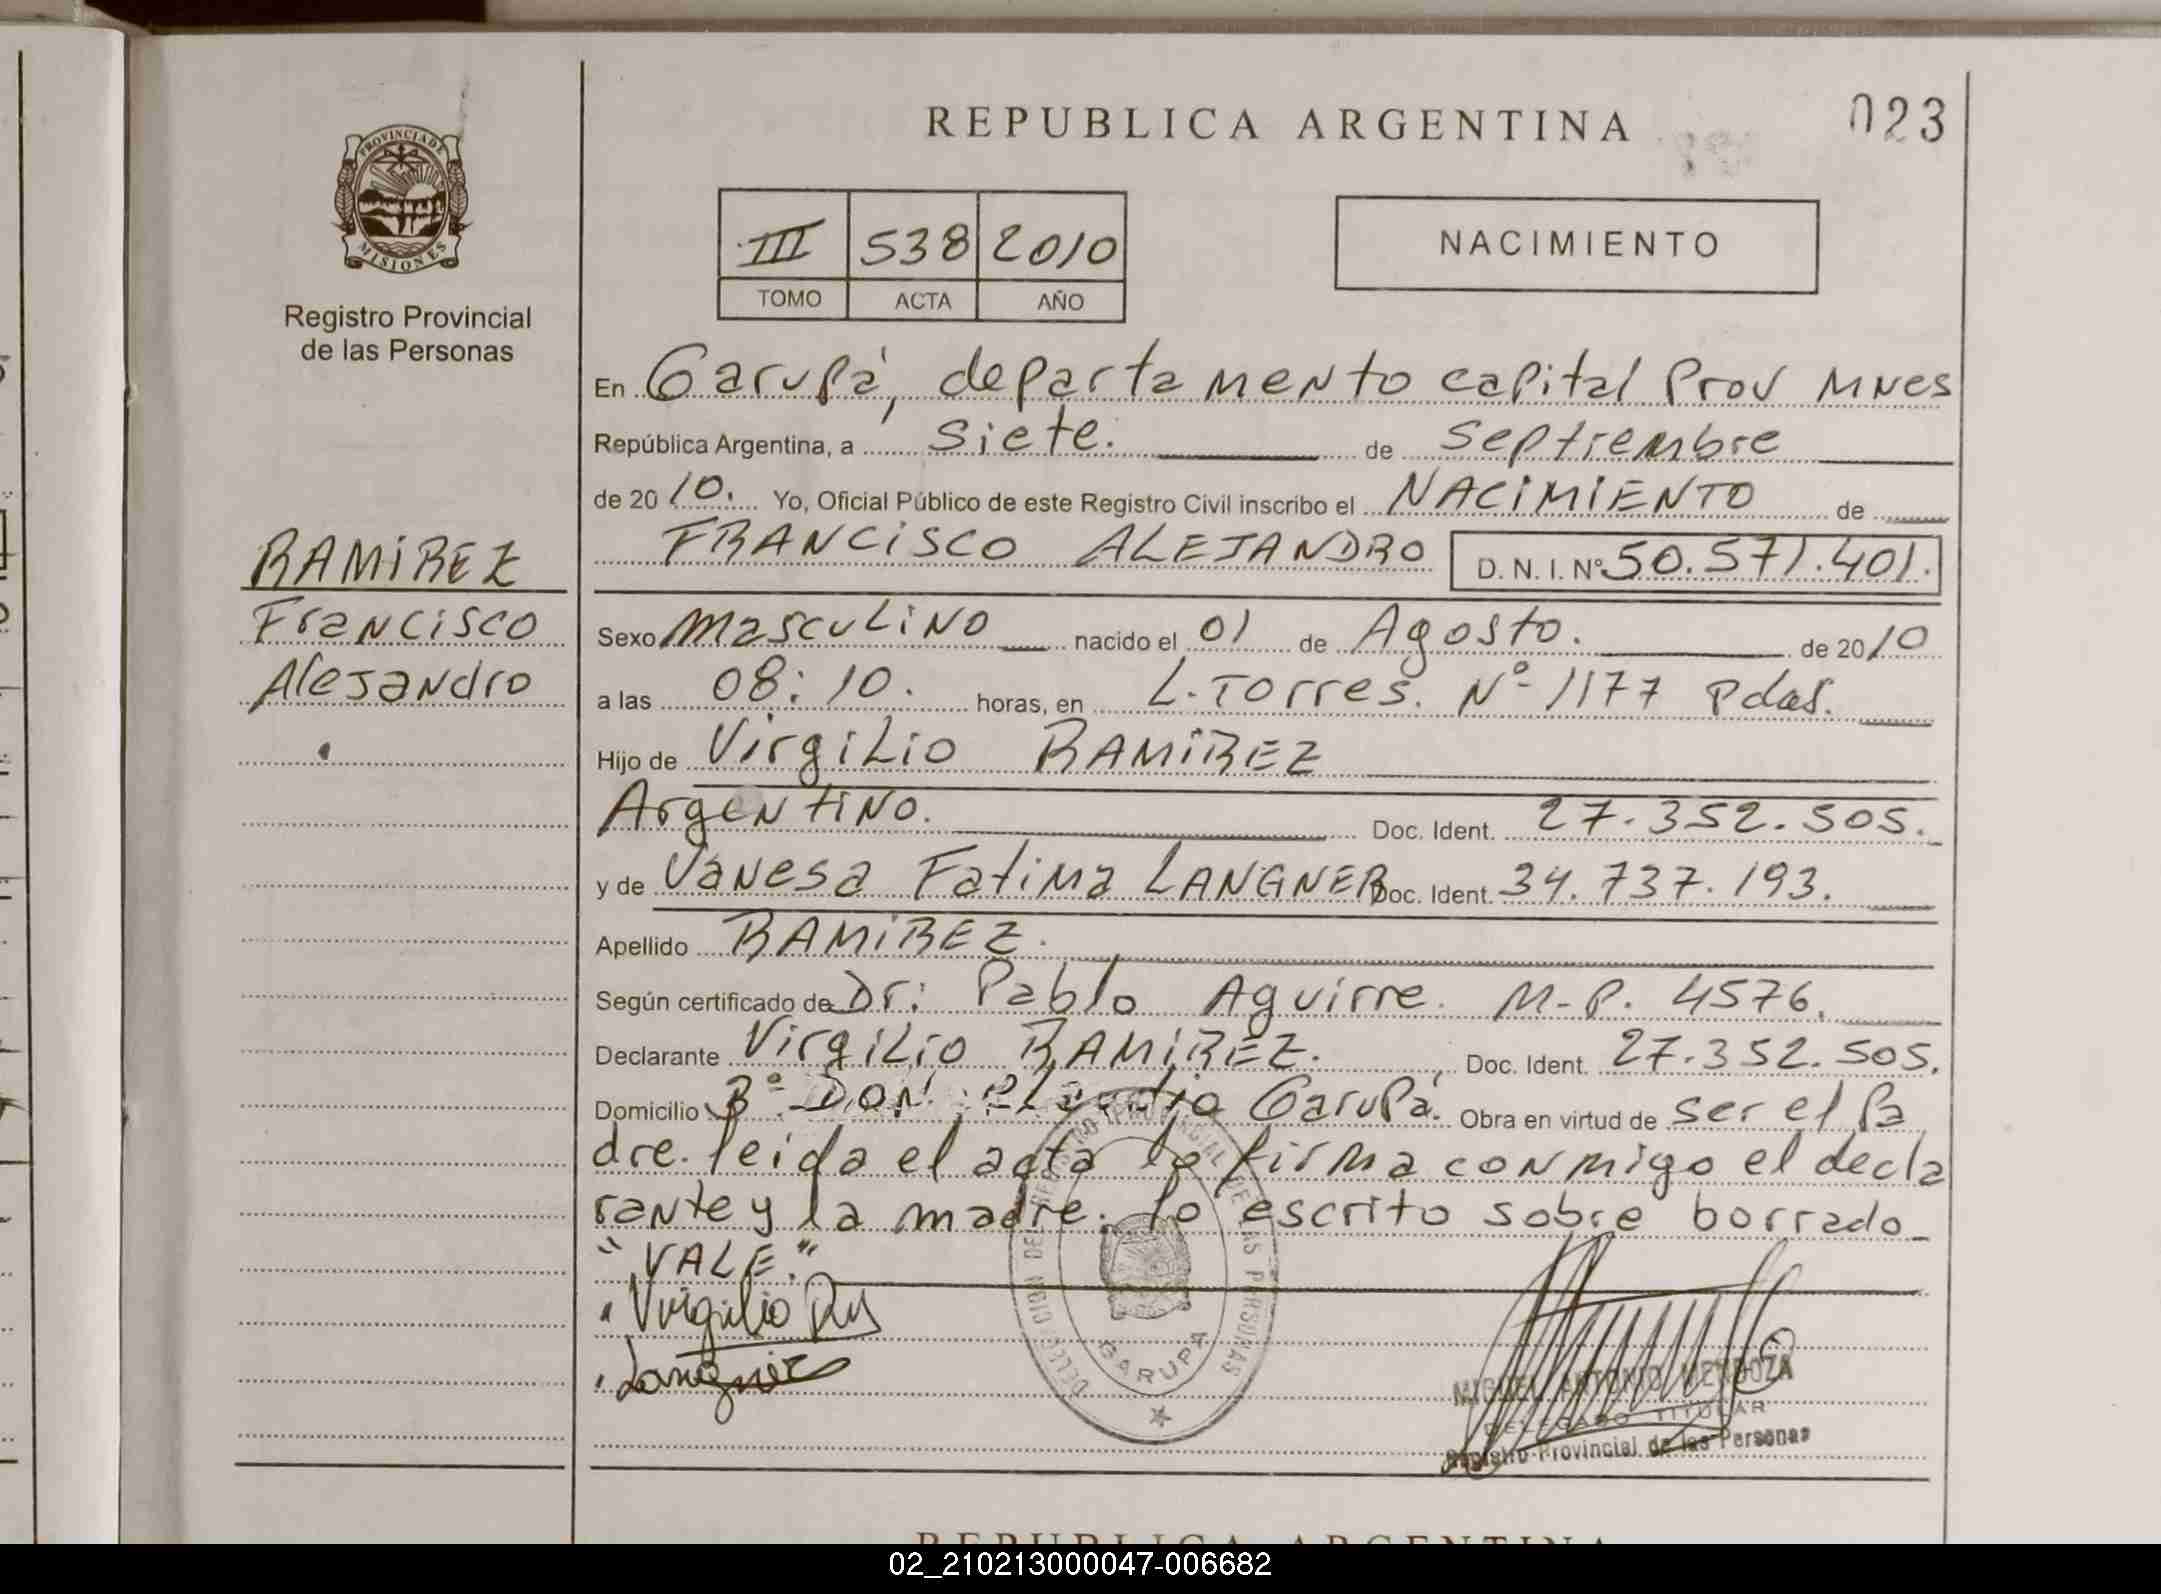 REPUBLICA ARGENTINA
023
PROVINCIA DE
MISIONES
Registro Provincial
de las Personas
III 538 2010
TOMO ACTA AÑO
NACIMIENTO
RAMIREZ
Francisco
Alejandro
En Garupá, departamento capital Prov Mnes
República Argentina, a siete. de septiembre
de 2010. Yo, Oficial Público de este Registro Civil inscribo el NACIMIENTO de
FRANCISCO ALEJANDRO D. N. I. Nº 50.571.401.
Sexo masculino nacido el 01 de Agosto. de 2010
a las 08:10. horas, en L. Torres. Nº 1177 Pdas.
Hijo de Virgilio RAMIREZ
Argentino. Doc. Ident. 27.352.505.
y de Vanesa Fatima LANGNER Doc. Ident. 34.737.193.
Apellido RAMIREZ.
Según certificado de Dr: Pablo Aguirre. M-P. 4576.
Declarante Virgilio RAMIREZ. , Doc. Ident. 27.352.505.
Domicilio Bº Don Garupá. Obra en virtud de ser el Pa
dre. leida el acta lo firma conmigo el decla
rante y la madre. lo escrito sobre borrado
"VALE."
Virgilio
Langner
DELEGACION DEL REGISTRO PROVINCIAL DE LAS PERSONAS
GARUPA
MIGUEL ANTONIO MENDOZA
DELEGADO TITULAR
Registro Provincial de las Personas
REPUBLICA ARGENTINA
02_210213000047-006682